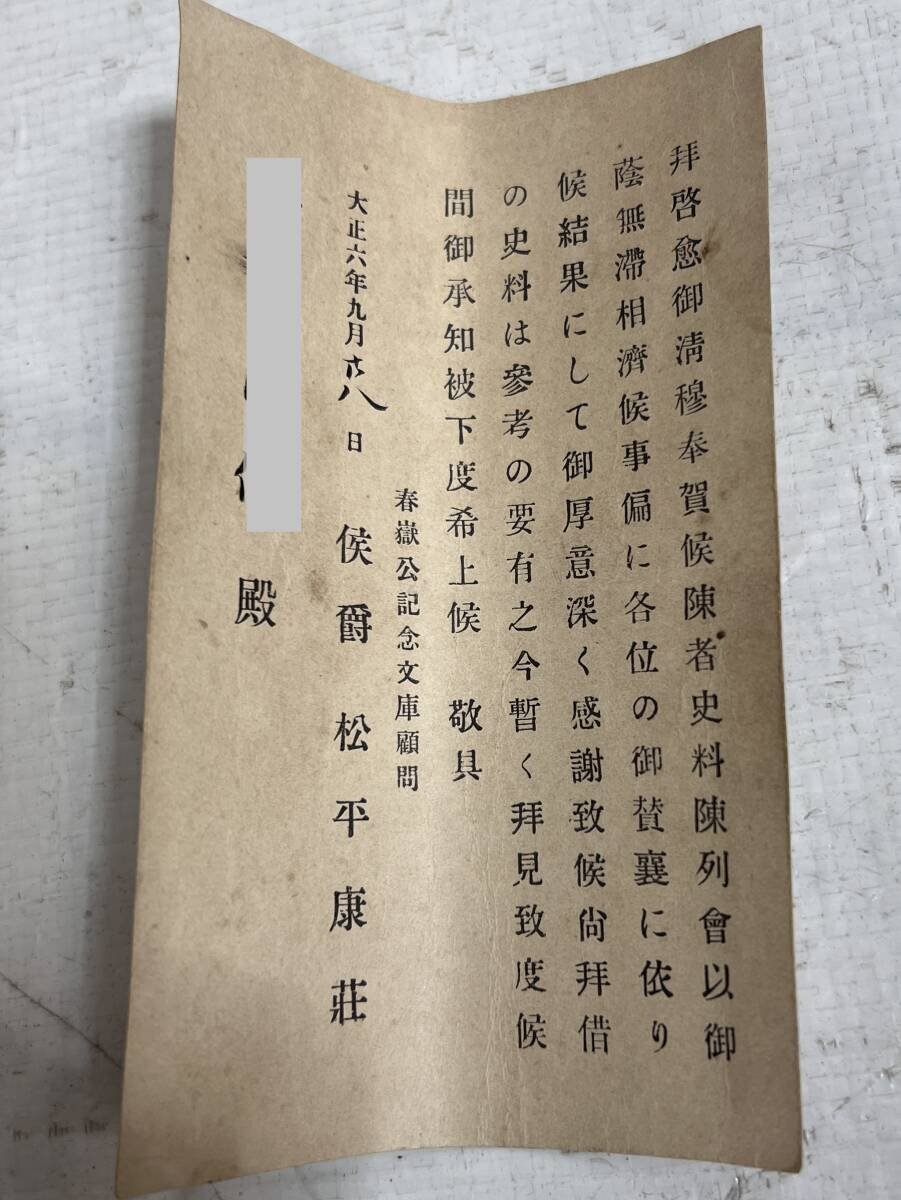 拜啓愈御淸穆奉賀候陳者史料陳列會以御
蔭無滯相濟候事偏に各位の御賛襄に依り
候結果にして御厚意深く感謝致候尙拜借
の史料は參考の要有之今暫く拜見致度候
間御承知被下度希上候 敬具
春嶽公記念文庫顧問
大正六年九月 日 侯爵 松平康莊
殿